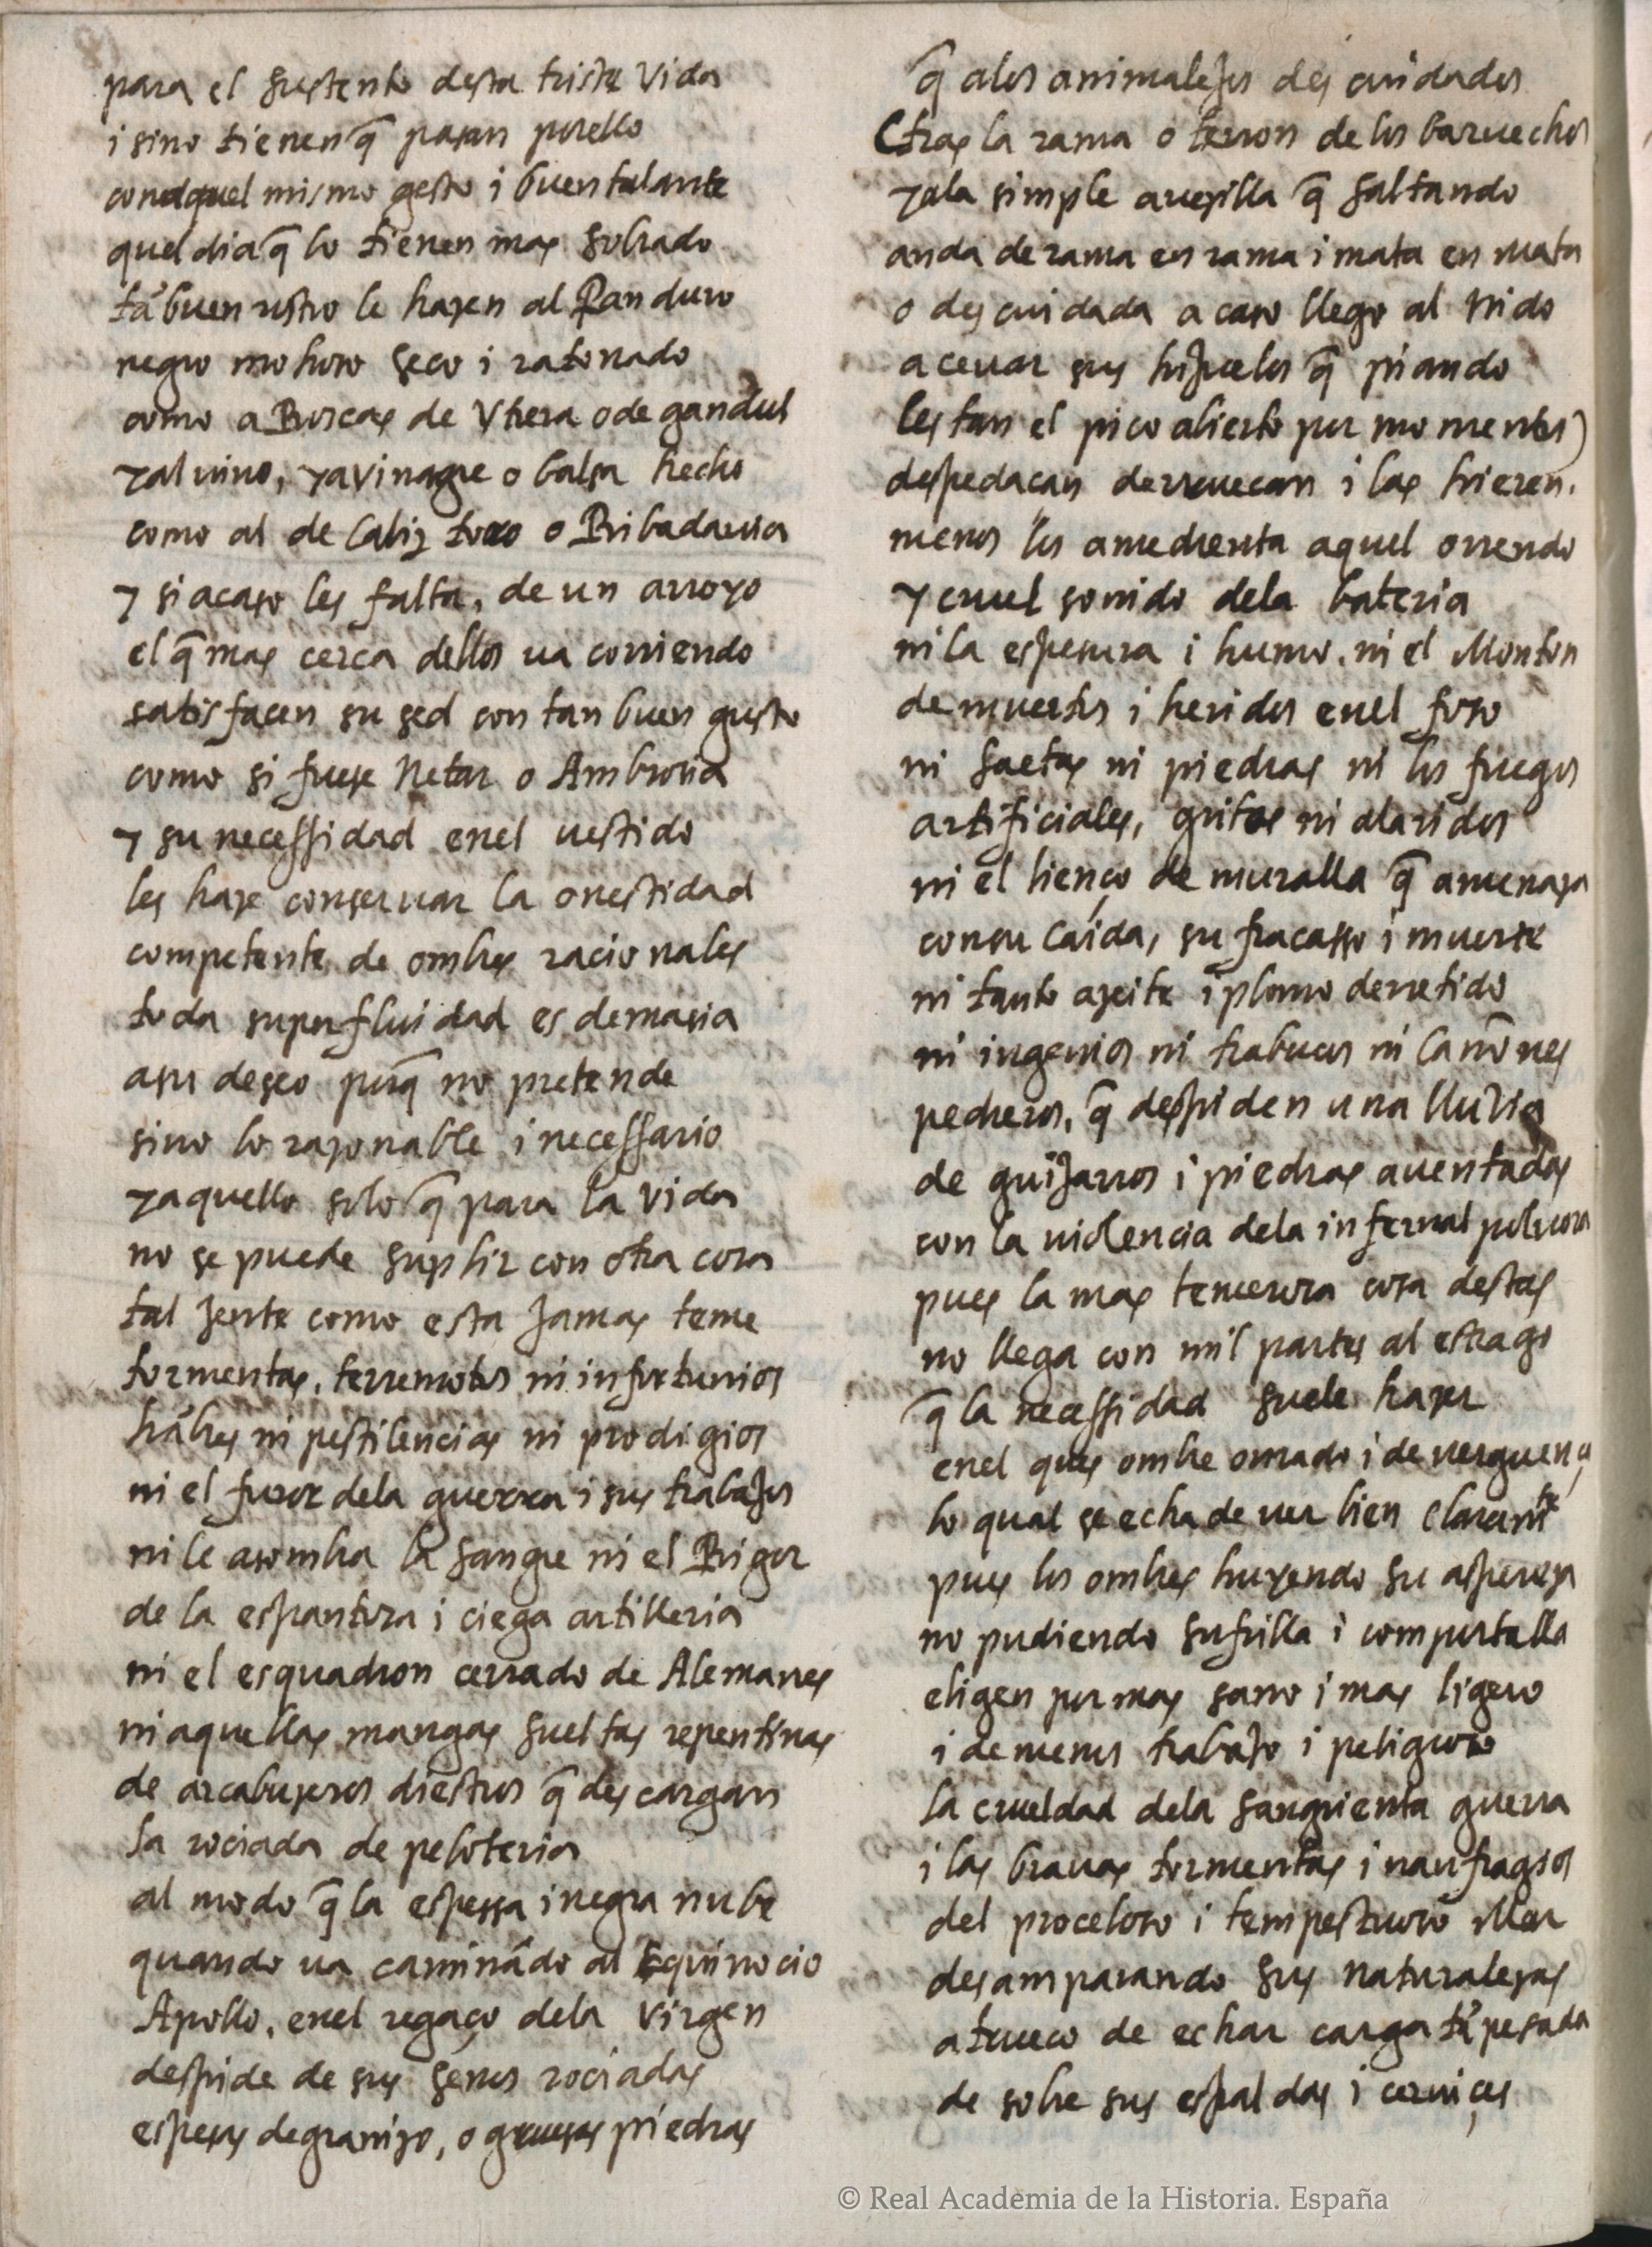 para el sustento desta triste Vida
i sino tienen q̃ pasan porello
conaquel mismo gesto i buen talante
quel dia q̃ lo tienen mas sobrado
tã buen rostro le hazen al Pan duro
negro mohoso seco i ratonado
como a Roscas de Vtrera o de gandul
y al uino, ya vinagre o balsa hecho
como al de Caliz toro o Ribadauia
y si acaso les falta, de un arroyo
el q̃ mas cerca dellos ua corriendo
satisfacen su sed con tan buen gusto
como si fuese Netar o Ambrosia
y su necessidad enel uestido
les haze conseruar la onestidad
competente de ombres racionales
toda superfluidad es demasia
a su deseo porq̃ no pretende
sino lo razonable i necessario
y aquello solo q̃ para la vida
no se puede suplir con otra cosa
tal Jente como esta Jamas teme
tormentas, terremotos ni infortunios
hãbres ni pestilencias ni prodigios
ni el furor dela guerra i sus trabaJos
ni le asombra la sangre ni el Rigor
de la espantosa i ciega artilleria
ni el esquadron cerrado de Alemanes
ni aquellas mangas sueltas repentinas
de arcabuzeros diestros q̃ descargan
la rociada de peloteria
al modo q̃ la espessa i negra nube
quando ua caminãdo al Equinocio
Apollo, enel regaço dela Virgen
despide de sus senos rociadas
espesas de granizo, o gruesas piedras
q̃ alos animaleJos descuidados
(tras la rama o terron de los baruechos
y ala simple auesilla q̃ saltando
anda de rama en rama i mata en mata
o descuidada acaso llego al Nido
a ceuar sus hiJuelos q̃ piando
lestan el pico abierto por momentos)
despedacan derruecan i las hieren.
menos los amedrenta aquel orrendo
y cruel sonido dela bateria
ni la espesura i humo, ni el Monton
de muertos i heridos enel foso
ni saetas ni piedras ni los fuegos
artificiales, gritos ni alaridos
ni el lienço de muralla q̃ amenaza
con su Caida, su fracasso i muerte
ni tanto azeite i plomo derretido
ni ingenios ni trabucos ni Cañones
pedreros, q̃ despiden una lluvia
de guiJarros i piedras auentadas
con la uiolencia dela infernal poluora
pues la mas temerosa cosa destas
no llega con mil partes al estrago
q̃ la necessidad suele hazer
enel ques ombre onrado i de uerguença
lo qual se echa de uer bien claramte
pues los ombres huyendo su aspereza
no pudiendo sufrilla i comportalla
eligen por mas sano i mas ligero
i de menos trabaJo i peligroso
la crueldad dela sangrienta guerra
i las brauas tormentas i naufragios
del proceloso i tempestuoso Mar
desamparando sus naturalezas
a trueco de echar carga tã pesada
de sobre sus espaldas i ceruiçes
© Real Academia de la Historia. España